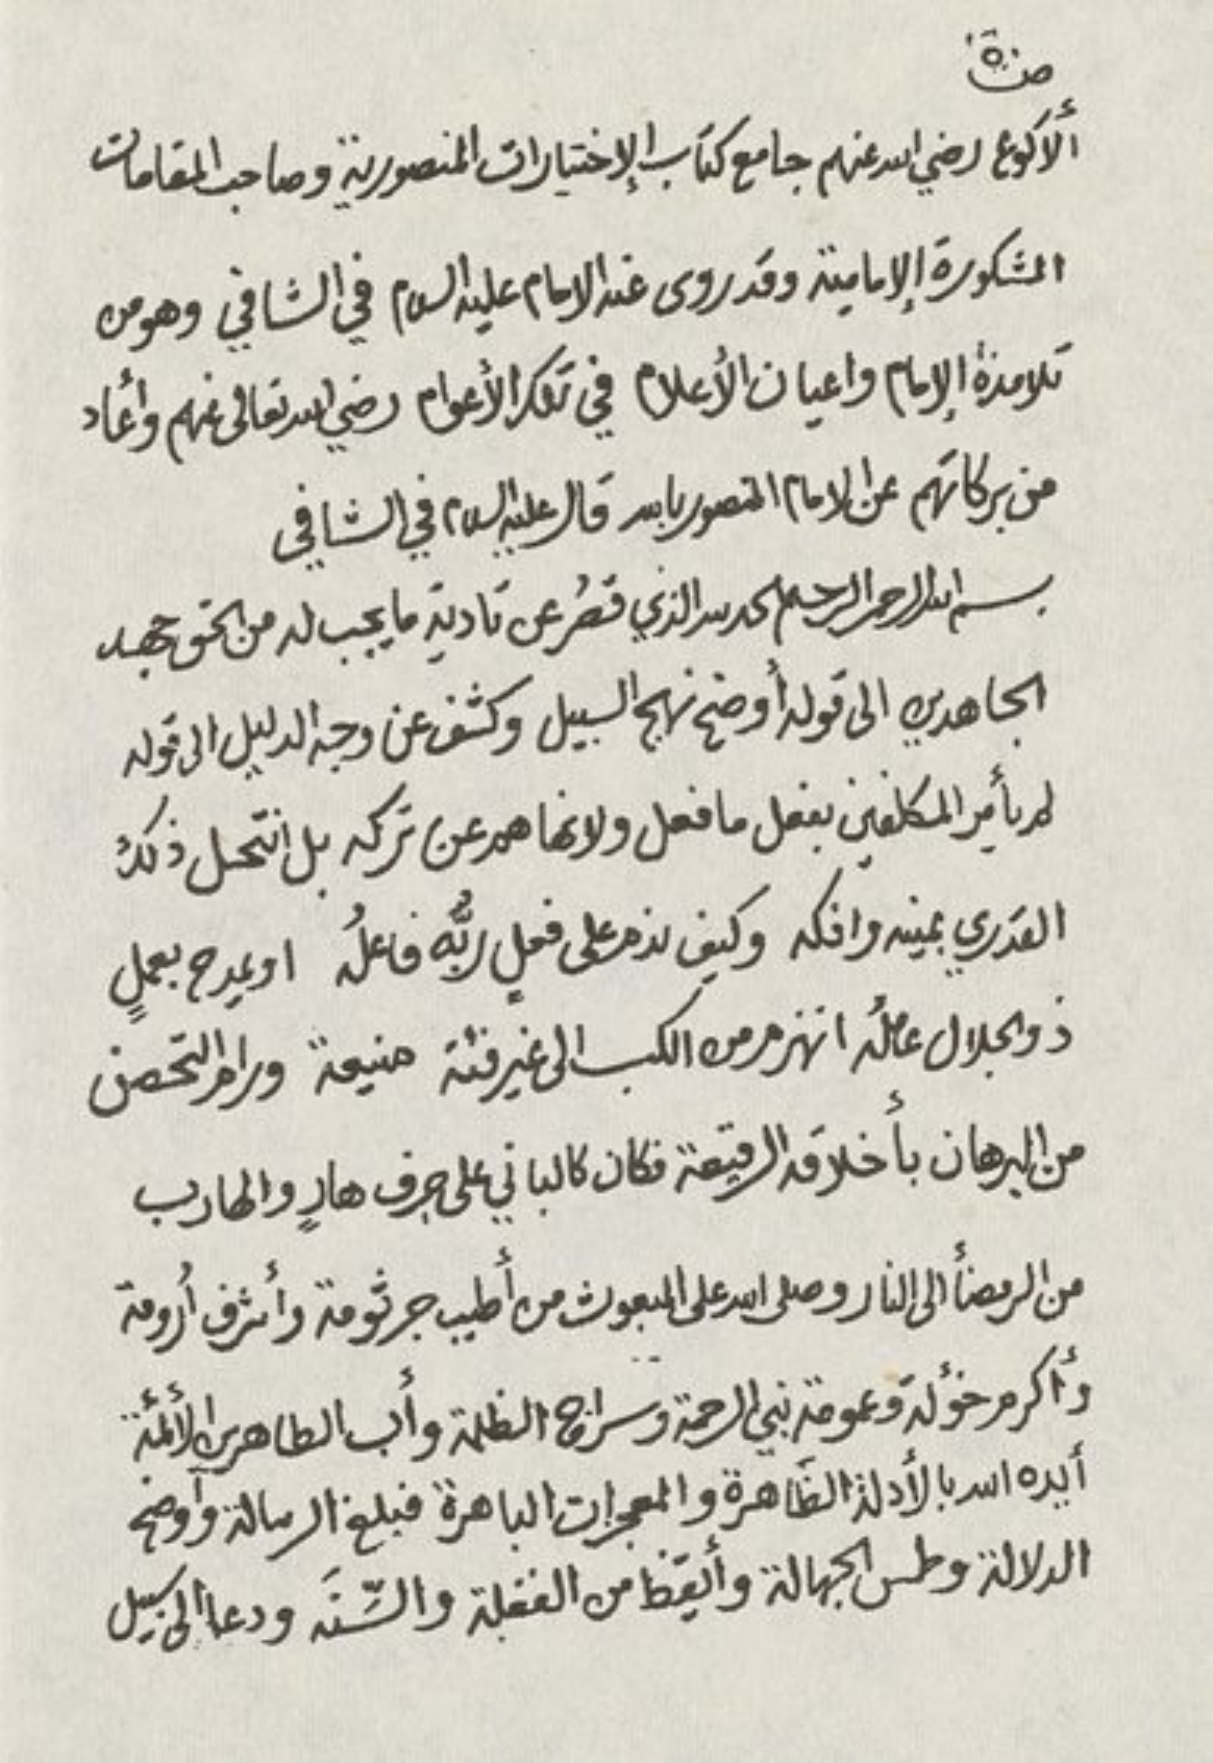 الأكوع رضي الله عنهم جامع كتاب الإختيارات المنصورية وصاحب المقامات
المشكورة الإمامية وقد روى عنه الامام عليه السلام في الشافي وهو من
تلامذة الإمام واعيان الأعلام في تلك الأعوام رضي الله تعالى عنهم وأعاد
من بركاتهم عن الامام المنصور بالله قال عليه السلام في الشافي
بسم الله الرحمن الرحيم الحمد لله الذي قصُر عن تادية ما يجب له من الحق جهد
الجاهدين الى قوله أوضح نهج السبيل وكشف عن وجه الدليل الى قوله
لم يأمر المكلفين بفعل ما فعل ولا نهاهم عن تركه بل انتحل ذلك
القدري بمينه وافكه وكيف يذم على فعلٍ ربُّه فاعلُه او يمدح بعملٍ
ذو الجلال عاملُه انهزم من الكسب الى غير فئة منيعة ورام التحصن
من البرهان بأخلاقه الرقيعة فكان كالباني على جرف هارٍ والهارب
من الرمضأ الى النار وصلى الله على المبعوث من أطيب جرثومة وأشرف أرومة
وأكرم خؤلة وعمومة نبي الرحمة وسراج الظلمة وأب الطاهرين الأئمة
أيده الله بالأدلة الظاهرة والمعجزات الباهرة فبلغ الرسالة وأوضح
الدلالة وطمس الجهالة وأيقظ من الغفلة والسِّنَه ودعا الى سبيل